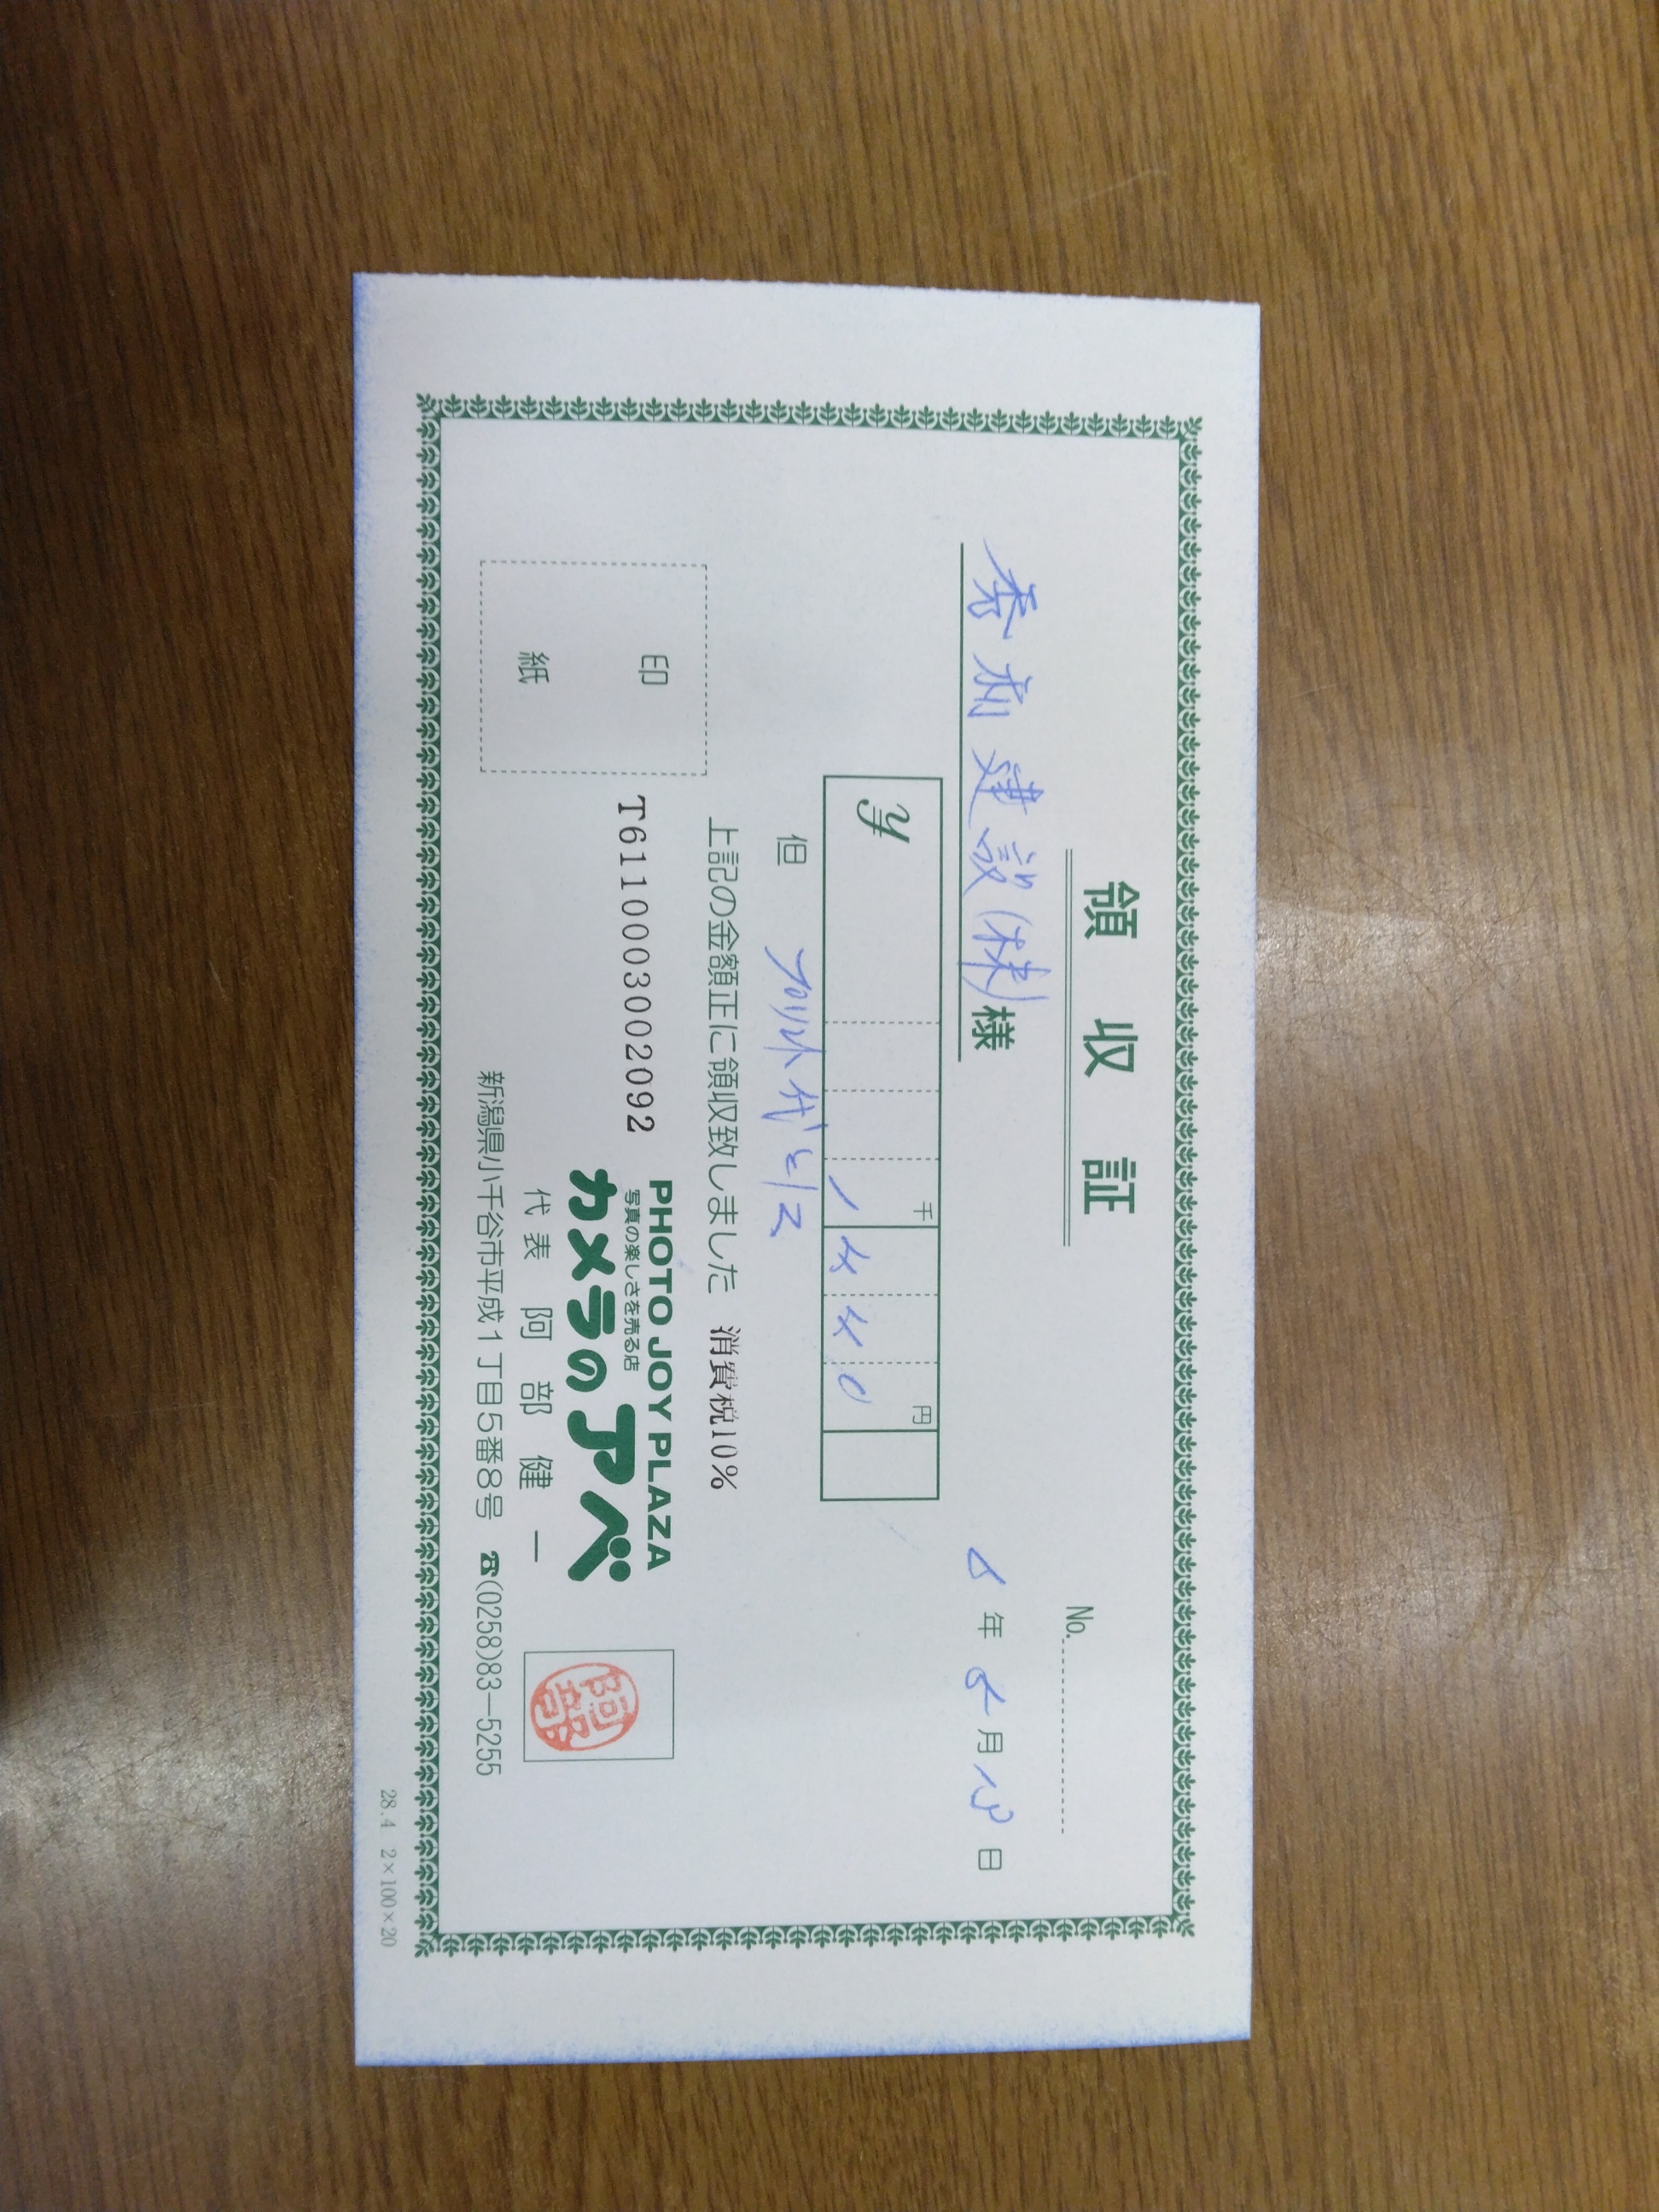 領収証
No.
建設(株)様
年 月 日
¥ 1440
千 円
但 プリント代として
上記の金額正に領収致しました 消費税10%
印
紙
T6110003002092
PHOTO JOY PLAZA
写真の楽しさを売る店
カメラのアベ
代表 阿部健一
阿部
新潟県小千谷市平成1丁目5番8号 ☎(0258)83-5255
28.4 2×100×20